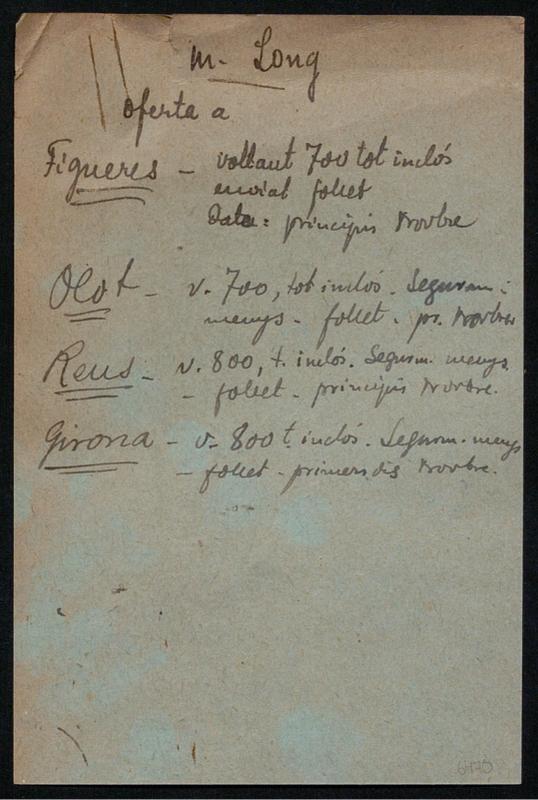 M. Long
oferta a
Figueres - voltant 700 tot inclós
enviat follet
Data: principis Novbre
Olot - v. 700, tot inclós. Segurm.
menys - follet - pr. Novbre
Reus - v. 800, t. inclós. Segurm. menys
- follet - principis Novbre.
Girona - v. 800 t. inclós. Segurm. menys
- follet - primers dis Novbre.
6470